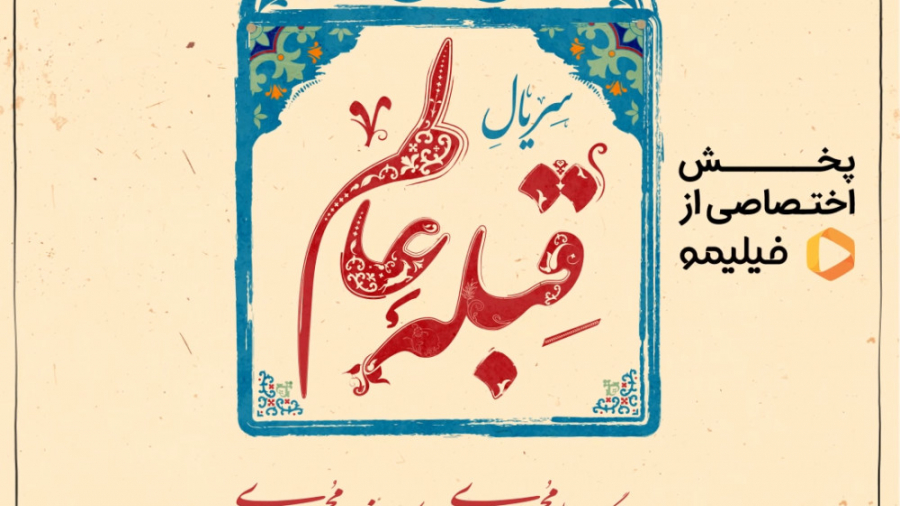 سریالِ
قبلهٔ عالم
پخش
اختصاصی از
فیلیمو